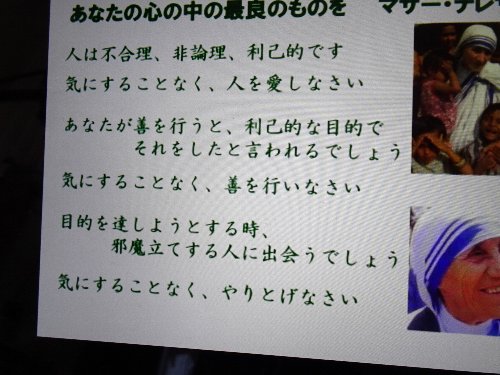 あなたの心の中の最良のものを マザー・テレサ
人は不合理、非論理、利己的です
気にすることなく、人を愛しなさい
あなたが善を行うと、利己的な目的で
それをしたと言われるでしょう
気にすることなく、善を行いなさい
目的を達しようとする時、
邪魔立てする人に出会うでしょう
気にすることなく、やりとげなさい